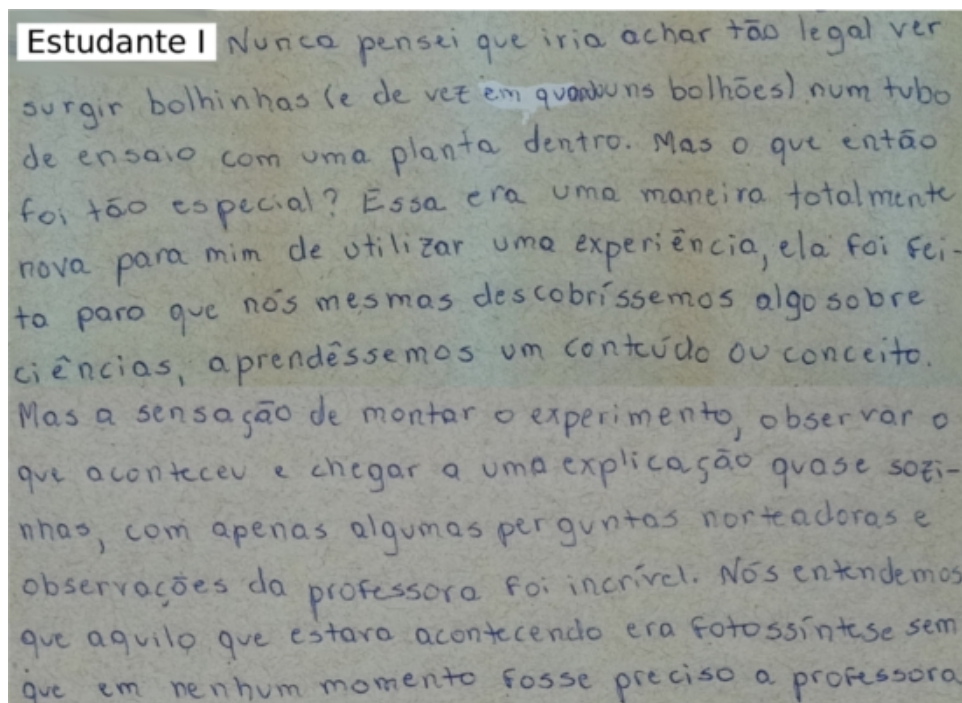 Estudante I Nunca pensei que iria achar tão legal ver
surgir bolhinhas (e de vez em quando uns bolhões) num tubo
de ensaio com uma planta dentro. Mas o que então
foi tão especial? Essa era uma maneira totalmente
nova para mim de utilizar uma experiência, ela foi fei-
ta para que nós mesmas descobríssemos algo sobre
ciências, aprendêssemos um conteúdo ou conceito.
Mas a sensação de montar o experimento, observar o
que aconteceu e chegar a uma explicação quase sozi-
nhas, com apenas algumas perguntas norteadoras e
observações da professora foi incrível. Nós entendemos
que aquilo que estava acontecendo era fotossíntese sem
que em nenhum momento fosse preciso a professora